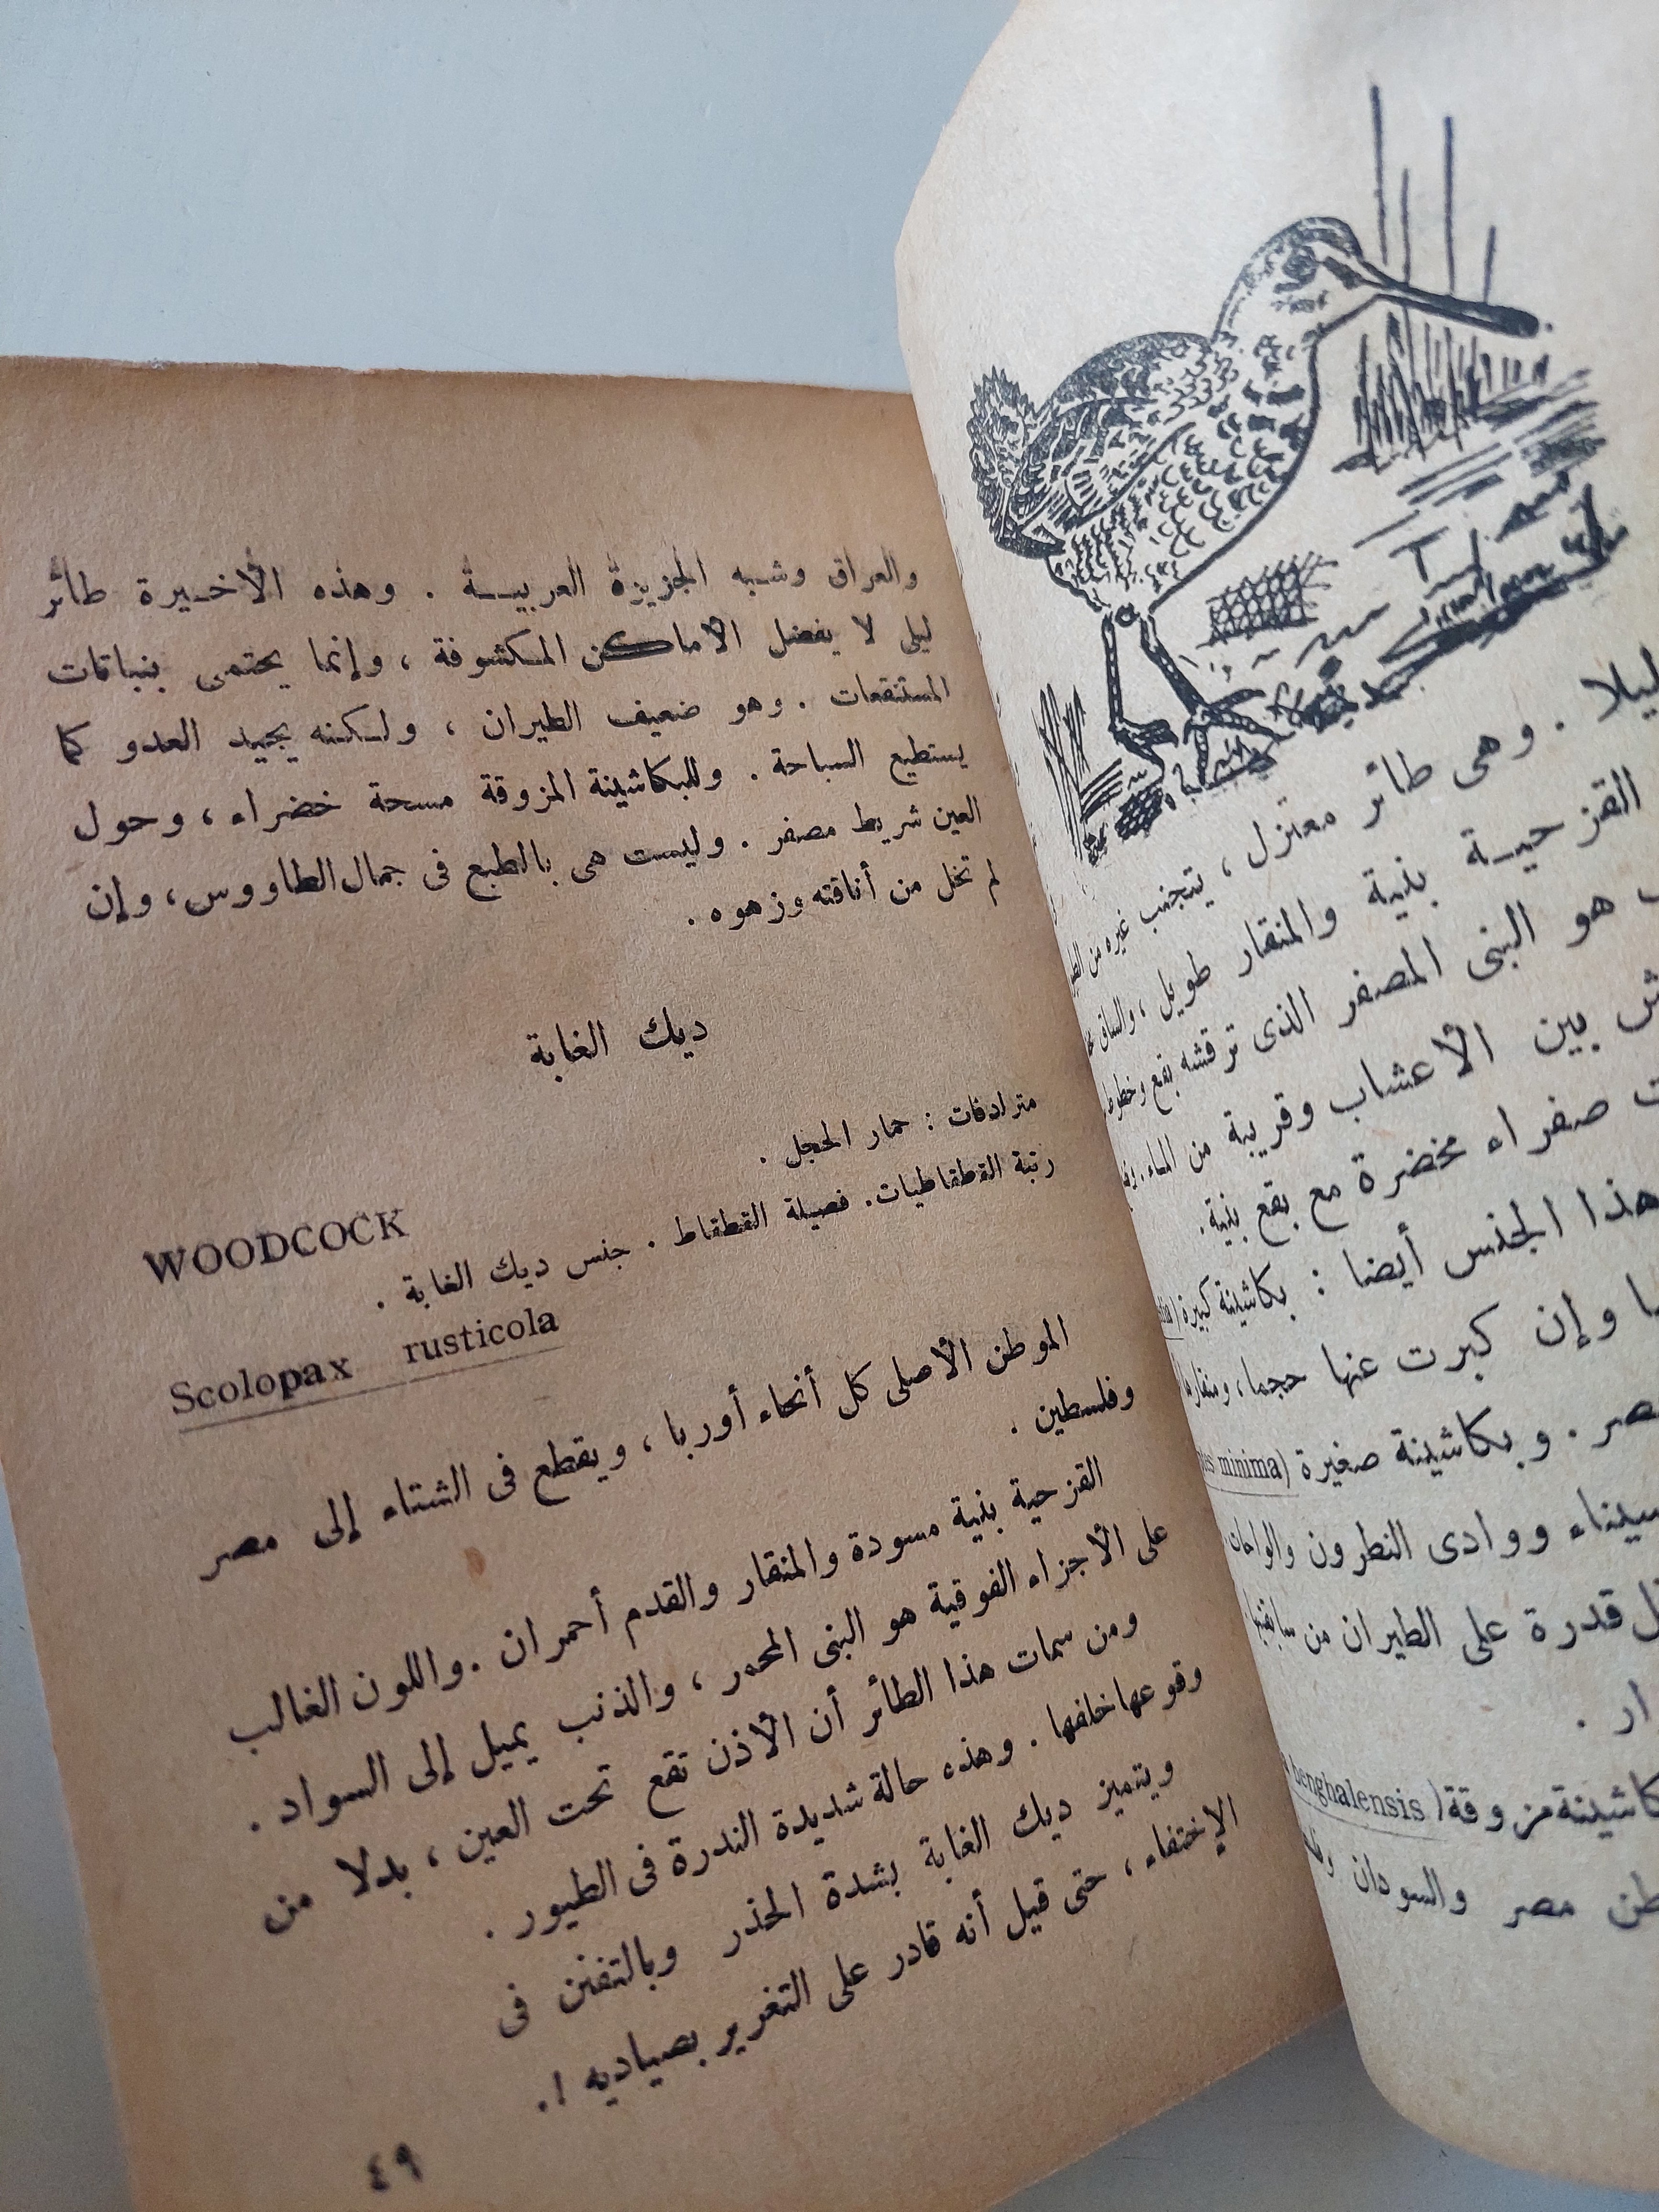 ليلا . وهى طائر معتزل ، يتجنب غيره من
القزحيـة بنية والمنقار طويل ، والساق
هو البنى المصفر الذى ترقشه بقع وخطوط
بين الأعشاب وقريبة من الماء .
صفراء مخضرة مع بقع بنية .
هذا الجنس أيضا : بكاشينة كبيرة (
وإن كبرت عنها حجما ، ومنقارها
. وبكاشينة صغيرة (minima
سيناء ووادى النطرون والواحات
قدرة على الطيران من سابقتها
مزوقة (benghalensis
مصر والسودان
والعراق وشبه الجزيرة العربيـــة . وهذه الأخـيرة طائر
ليلى لا يفضل الاماكن المكشوفة ، وإنما يحتمى بنباتات
المستنقعات . وهو ضعيف الطيران ، ولكنه يجيد العدو كما
يستطيع السباحة . وللبكاشينة المزوقة مسحة خضراء ، وحول
العين شريط مصفر . وليست هى بالطبع فى جمال الطاووس ، وإن
لم تخل من أناقته وزهوه .
ديك الغابة
مترادفات : حمار الحجل .
WOODCOCK
رتبة القطقاطيات . فصيلة القطقاط . جنس ديك الغابة .
Scolopax rusticola
الموطن الأصلى كل أنحاء أوربا ، ويقطع فى الشتاء إلى مصر
وفلسطين .
القزحية بنية مسودة والمنقار والقدم أحمران . واللون الغالب
على الأجزاء الفوقية هو البنى المحمر ، والذنب يميل إلى السواد .
ومن سمات هذا الطائر أن الأذن تقع تحت العين ، بدلا من
وقوعها خلفها . وهذه حالة شديدة الندرة فى الطيور .
ويتميز ديك الغابة بشدة الحذر وبالتفنن فى
الإختفاء ، حتى قيل أنه قادر على التغرير بصياديه ! .
٤٩